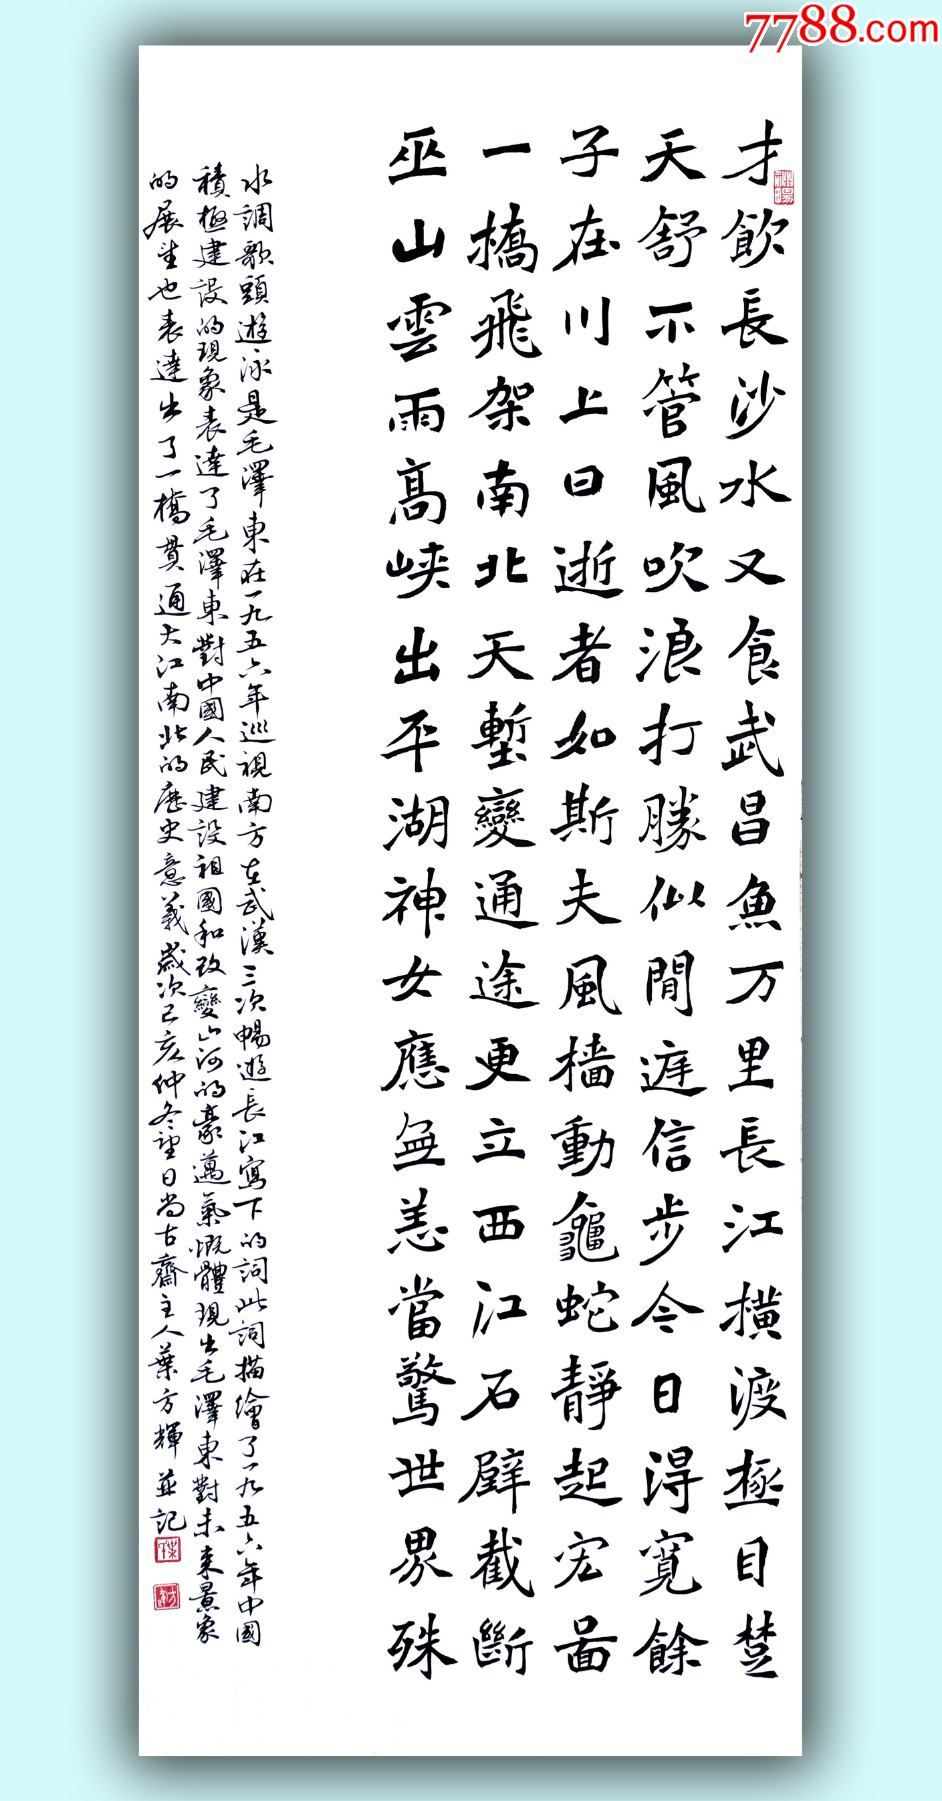 7788.com
才飲長沙水又食武昌魚万里長江横渡極目楚
天舒不管風吹浪打勝似閒庭信步今日得寬餘
子在川上曰逝者如斯夫風檣動龜蛇靜起宏圖
一橋飛架南北天塹變通途更立西江石壁截斷
巫山雲雨高峡出平湖神女應無恙當驚世界殊
水調歌頭遊泳是毛澤東在一九五六年巡視南方在武漢三次暢遊長江寫下的詞此詞描繪了一九五六年中國
積極建設的現象表達了毛澤東對中國人民建設祖國和改變山河的豪邁氣慨體現出毛澤東對未來景象
的展望也表達出了一橋貫通大江南北的歷史意義歲次己亥仲冬望日尚古齋主人葉方輝並記